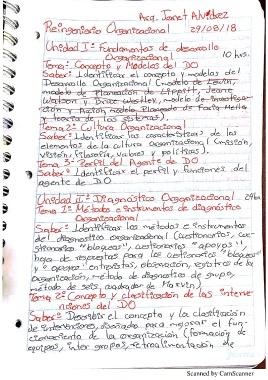 Acg. Janet Alvídrez
Reingeniería Organizacional 29/08/18
Unidad I: Fundamentos de desarrollo
Organizacional 10 hrs.
Tema: Concepto y Modelos del DO
Saber: Identificar el concepto y modelos del
Desarrollo Organizacional (modelo de Lewin,
modelo de Planeación de Lippitt, Jeane
Watson y Bruce Westley, modelo de investigación
Acción, modelo Planeado de Faria Mello
y teoría de los sistemas).
Tema 2: Cultura Organizacional
Saber: Identificar las características de los
elementos de la cultura Organizacional (misión,
visión, filosofía, valores y políticas).
Tema 3: Perfil del Agente de DO
Saber: Identificar el perfil y funciones del
agente de DO
Unidad II: Diagnóstico Organizacional
Tema 1: Métodos e instrumentos de diagnóstico
Organizacional
Saber: Identificar los métodos e instrumentos
del diagnóstico organizacional (cuestionarios, cues-
tionarios "bloques", cuestionarios "apoyos",
hoja de respuestas para los cuestionarios "bloques"
y "apoyos", entrevistas, observación, registros de la
Organización, método de diagnóstico de grupo,
método de seis, cuadrador de Marvin)
Tema 2: Concepto y clasificación de las inter-
venciones del DO
Saber: Describir el concepto y la clasificación
de intervenciones, diseñado para mejorar el fun-
cionamiento de la organización (formación de
equipos, inter grupos, retroalimentación de
Scanned by CamScanner